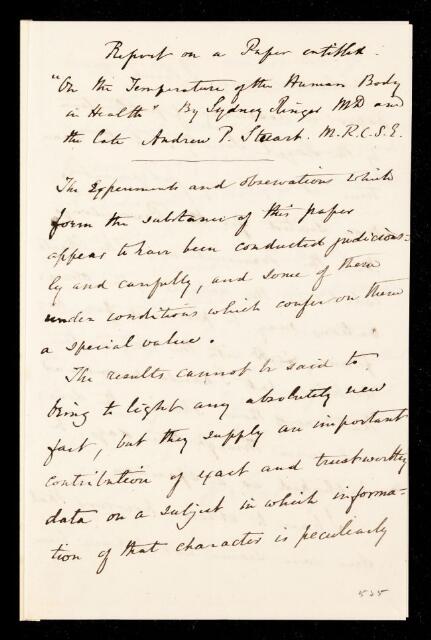 Report on a Paper entitled:
"On the Temperature of the Human Body
in Health" By Sydney Ringer MD and
the late Andrew P. Stuart. M.R.C.S.E.
The Experiments and observations which
form the substance of this paper
appear to have been conducted judicious=
ly and carefully, and some of them
under conditions which confer on them
a special value.
The results cannot be said to
bring to light any absolutely new
fact, but they supply an important
contribution of exact and trustworthy
data on a subject in which informa=
tion of that character is peculiarly
525